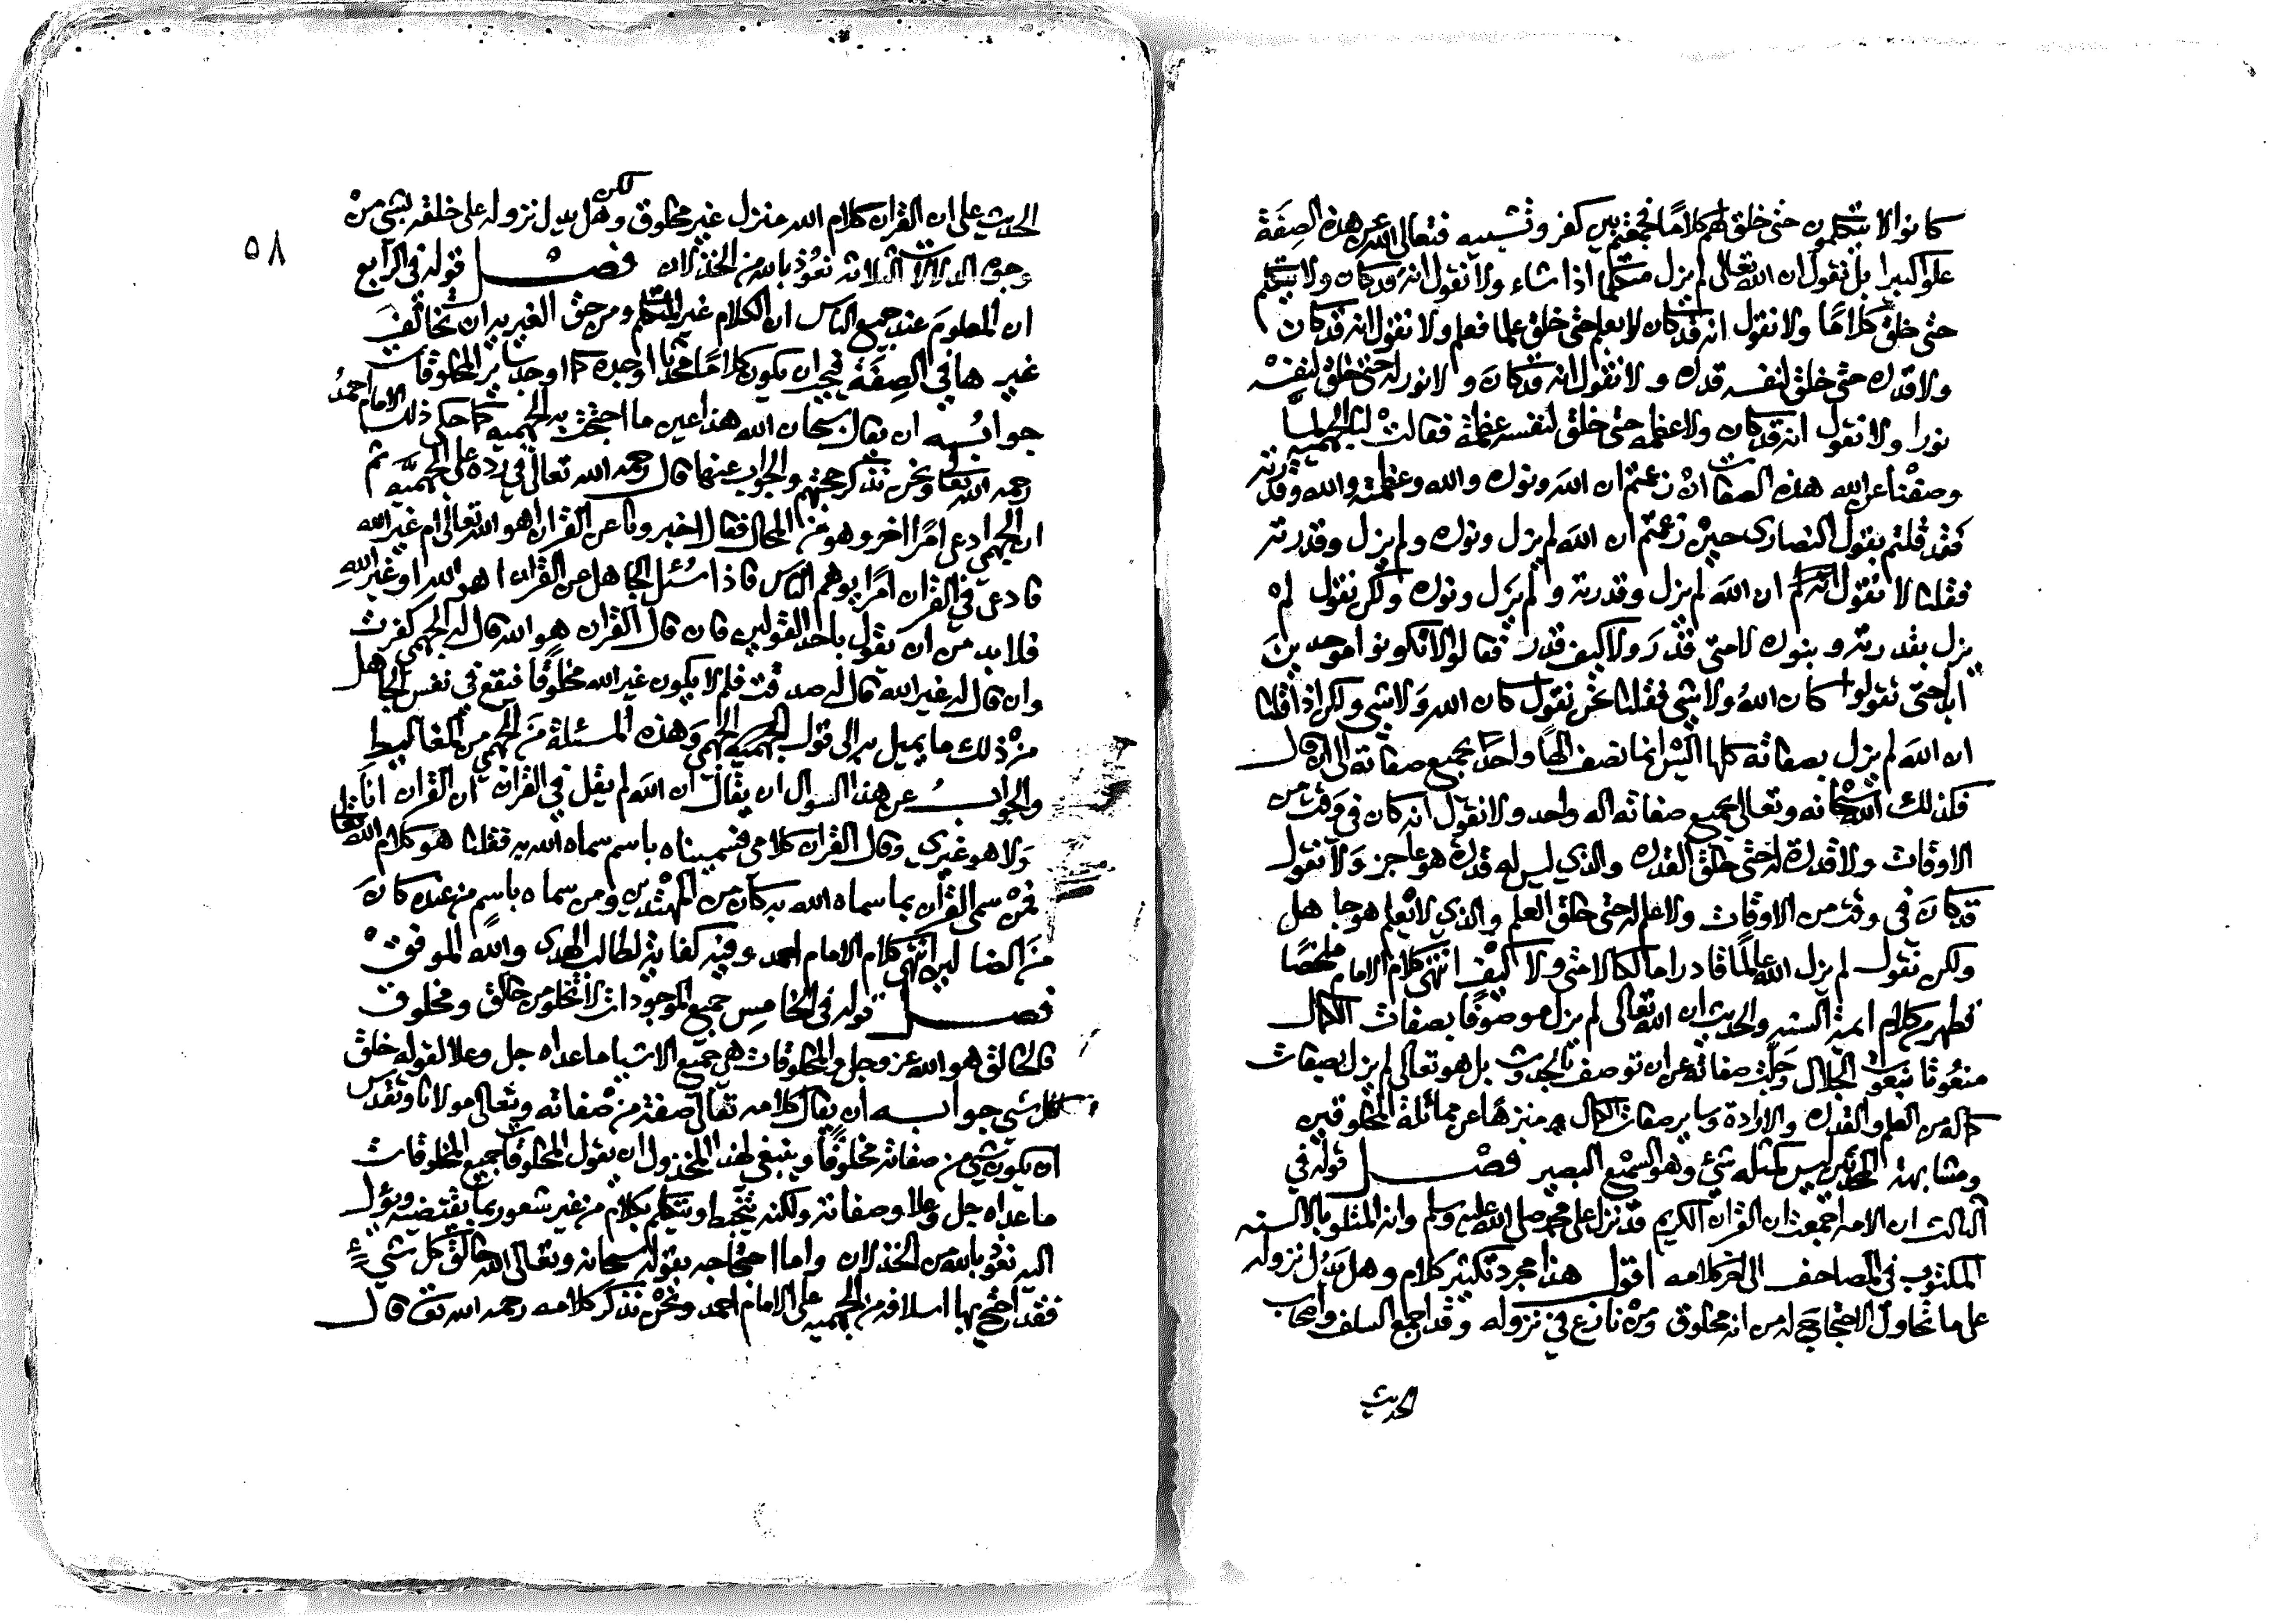 كانوا لا يتكلمون حتى خلق لهم كلامًا فجمعتم بين كفر وتشبيه فتعالى الله عن هذه الصِفَة
علوا كبيرا بل نقول ان الله تعالى لم يزل متكلما اذا شاء ولا نقول انه قد كان ولا يتكلم
حتى خلق كلامًا ولا نقول انه قد كان لا يعلم حتى خلق علما فعلم ولا نقول انه قد كان
ولا قدره حتى خلق لنفسه قدره ولا نقول انه قد كان ولا نور له حتى خلق لنفسه
نورا ولا نقول انه قد كان ولا عظمه حتى خلق لنفسه عظمة فقالت لنا الجهمية لما
وصفنا عن الله هذه الصفات ان زعمتم ان الله ونوره والله وعظمته والله وقدرته
فقد قلتم بقول النصارى حين زعمتم ان الله لم يزل ونوره ولم يزل وقدرته
فقلنا لا نقول ان الله لم يزل وقدرته ولم يزل ونوره ولكن نقول لم
يزل بقدرته وبنوره لا متى قدَرَ ولا كيف قدر فقالوا لا تكونوا موحدين
ابدا حتى تقولوا كان اللهُ ولا شي فقلنا نحن نقول كان الله ولا شي ولكن اذا قلنا
ان الله لم يزل بصفاته كلها اليس انما نصف الهًا واحدًا بجميع صفاته الى ان قال
فكذلك الله سبحانه وتعالى بجميع صفاته اله واحد ولا نقول انه كان في وقت من
الاوقات ولا قدرة له حتى خلق القدره والذي ليس له قدره هو عاجز ولا نقول
قد كان في وقت من الاوقات ولا علم له حتى خلق العلم والذي لا يعلم هو جاهل
ولكن نقول لم يزل الله عالمًا قادرا مالكا لا متى ولا كيف انتهى كلام الامام ملخصًا
فظهر من كلام ايمة السنه والحديث ان الله تعالى لم يزل موصوفًا بصفات الكمال
منعوتا بنعوت الجلال وجلّت صفاته عن ان توصف بالحدوث بل هو تعالى لم يزل بصفات
كماله من العلم والقدره والارادة وساير صفات الكمال منزهًا عن مماثلة المخلوقين
ومشابهة المحدثين ليس كمثله شيء وهو السميع البصير فصل قوله في
الثالث ان الامه اجمعت ان القران الكريم قد نزل على محمد صلى الله عليه وسلم وانه المتلو بالالسنه
المكتوب في المصاحف الى اخر كلامه اقول هذا مجرد تكثير كلام وهل يدل نزوله
على ما تحاول الاحتجاج له من انه مخلوق ومن نازع في نزوله وقد اجمع السلف واصحاب
الحديث
٥٨
الحديث على ان القران كلام الله منزل غير مخلوق لكن وهل يدل نزوله على خلقه بشي من
وجوه الدلالات الثلاثه نعوذ بالله من الخذلان فصل قوله في الرابع
ان المعلوم عند جميع الناس ان الكلام غير المتكلم ومن حق الغيريه ان تخالف
غيرها في الصِفَة فيجب ان يكون كلامًا محدثا اوجده كما اوجد ساير المخلوقات
جوابه ان يقال سبحان الله هذا عين ما احتجت به الجهميه كما حكى ذلك الامام احمدُ
رحمه الله تعالى ونحن نذكر حجتهم والجواب عنها قال رحمه الله تعالى في رده على الجهميّه ثم
ان الجهمي ادعى امرًا اخر وهو من المحال فقال اخبرونا عن القران اهو الله تعالى ام غير الله
فادعى في القران امرًا يوهم الناس فاذا سُئل الجاهل عن القران اهو الله او غير اللهِ
فلا بد من ان يقول باحد القولين فان قال القران هو الله قال له الجهمي كفرت
وان قال له غير الله قال له صدقت فلم لا يكون غير الله مخلوقًا فيقع في نفس الجاهل
من ذلك ما يميل به الى قول الجهمي وهذه المسئلة من الجهمي من المغاليط
والجواب عن هذا السوال ان يقال ان الله لم يقل في القران ان القران انا
ولا هو غيري وقال القران كلامي فسميناه باسم سماه الله به فقلنا هو كلام الله تعالى
فمن سمى القران بما سماه الله به كان من المهتدين ومن سماه باسم من عنده كان
من الضالين انتهى كلام الامام احمد وفيه كفاية لطالب الهدى والله الموفق
فصل قوله في الخامس جميع الموجودات لا تخلو من خالق ومخلوق
فالخالق هو الله عز وجل والمخلوقات هي جميع الاشيا ما عداه جل وعلا لقوله خلق
كل شي جوابه ان يقال كلامه تعالى صفة من صفاته وتعالى مولانا وتقدس
ان يكون شي من صفاته مخلوقًا وينبغي لهذا المخذول ان يقول المخلوقات جميع المخلوقات
ما عداه جل وعلا وصفاته ولكنه يتخبط ويتكلم بكلام من غير شعور بما يقتضيه ويؤل
اليه نعوذ بالله من الخذلان واما احتجاجه بقوله سبحانه وتعالى الله خالق كل شيءٍ
فقد احتج بها اسلافه من الجهميه على الامام احمد ونحن نذكر كلامه رحمه الله تعالى قال